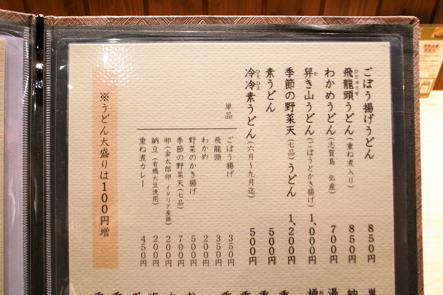 ごぼう揚げうどん 850円
飛龍頭うどん(重ね煮入り) 850円
わかめうどん(志賀島 弘産) 700円
舁き山うどん(ごぼうとかき揚げ) 1,000円
季節の野菜天(七品)うどん 1,200円
素うどん 500円
冷冷素うどん(六月〜九月迄) 500円
単品
ごぼう揚げ 350円
飛龍頭 350円
わかめ 200円
野菜のかき揚げ 500円
季節の野菜天(七品) 700円
納豆(有機大豆使用) 200円
重ね煮カレー 450円
※うどん大盛りは100円増